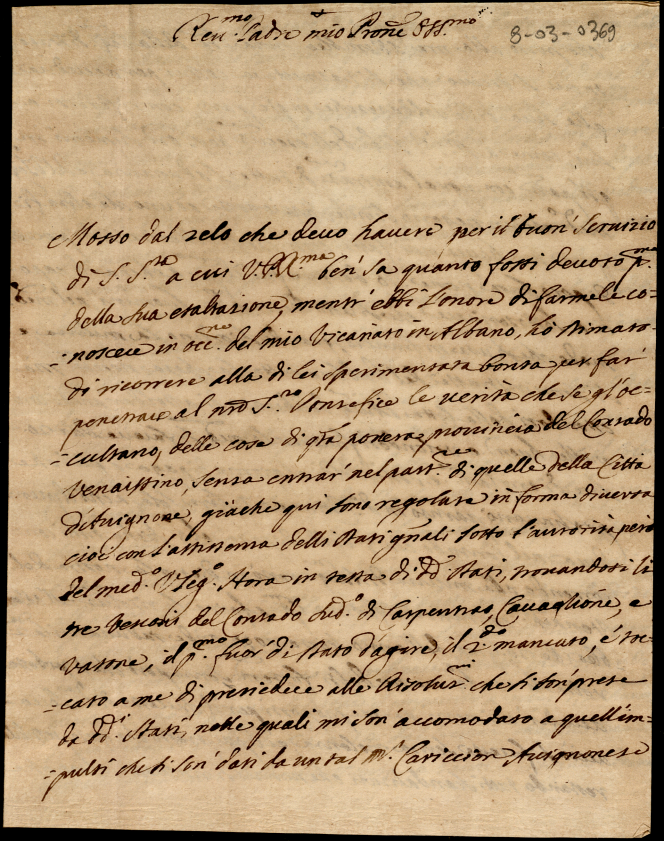 Reu.mo Padre mio Prone Oss.mo
8-03-0369
Mosso dal zelo che deuo hauere per il buon' seruizio
di S. S.tà a cui V. P. R.ma ben' sa quanto fossi deuoto p.ma
della sua esaltazione, mentr' ebbi l'onore di farmele co=
=noscere in occ.ne del mio Vicariato in Albano, hò stimato
di ricorrere alla di lei sperimentata bontà per far'
penetrare al nro S.mo Pontefice le verità che se gl'oc=
=cultano, delle cose di qta pouera prouincia del Contado
Venaissino, senza entrar' nel part.re di quelle della Città
d'Auignone, giàche qui sono regolate in forma diuersa
cioè con l'assistenza delli Stati gnali sotto l'autorità però
del med.o V. Leg.o Hora in testa di dd. Stati, trouandosi li
tre Vescoui del Contado sud.o di Carpentras, Cauaglione, e
Vasone, il p.mo fuor' di stato d'agire, il 2.do mancato, è toc=
=cato a me di presiedere alle Risoluz.ni che si son' prese
da dd.i Stati, nelle quali mi son' accomodato a quell'im=
=pulsi che si son' dati da un tal M.r Cariccion Auignonese